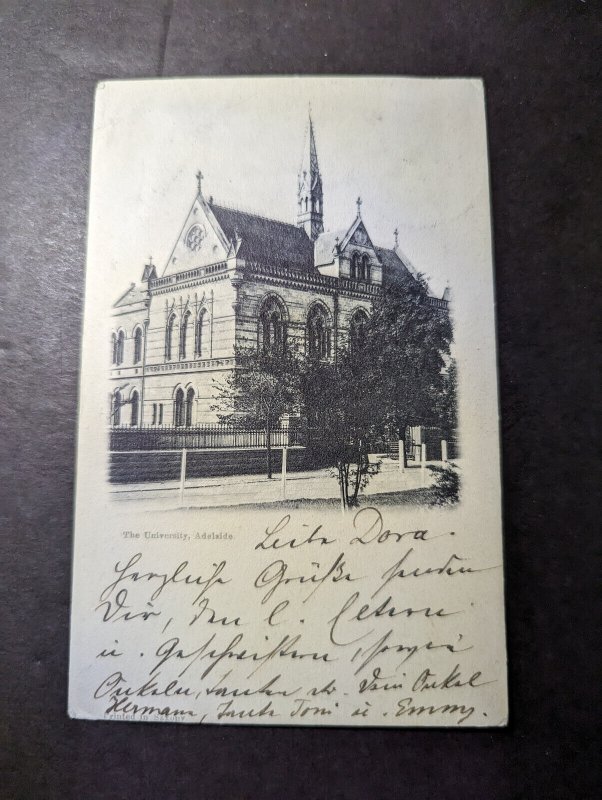 The University, Adelaide.
Liebe Dora.
Herzliche Grüße senden
Dir, den l. Eltern
u. Geschwistern, sowie
Onkeln, Tanten etc. Dein Onkel
Hermann, Tante Toni u. Emmy.
Printed in Saxony